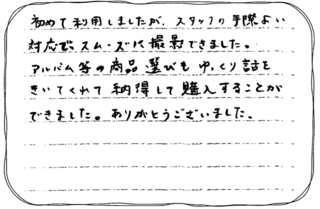 初めて利用しましたが、スタッフの手際よい
対応でスムーズに撮影できました。
アルバム等の商品選びもゆっくり話を
きいてくれて納得して購入することが
できました。ありがとうございました。